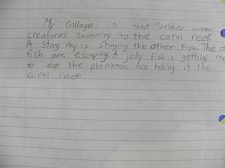 My collage is about under water
creatures swimming to the coral reef.
A sting ray is stinging the other fish. The
fish are escaping. A jelly fish is getting
to eat the plankton are hiding it the
coral reef.